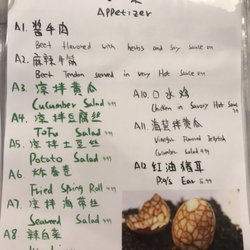 Appetizer
A1. 酱牛肉
Beef flavored with herbs and Soy sauce
A2. 麻辣牛筋
Beef Tendon served in very Hot Sauce
A3. 凉拌黄瓜
Cucumber Salad
A4. 凉拌豆腐丝
Tofu Salad
A5. 凉拌土豆丝
Potato Salad
A6. 炸春卷
Fried Spring Roll
A7. 凉拌海带丝
Seaweed Salad
A8 辣白菜
A10 口水鸡
Chicken in Savory Hot Sauce
A11 海蜇拌黄瓜
Jellyfish
Cucumber Salad
A12 红油猪耳
Pig's Ear